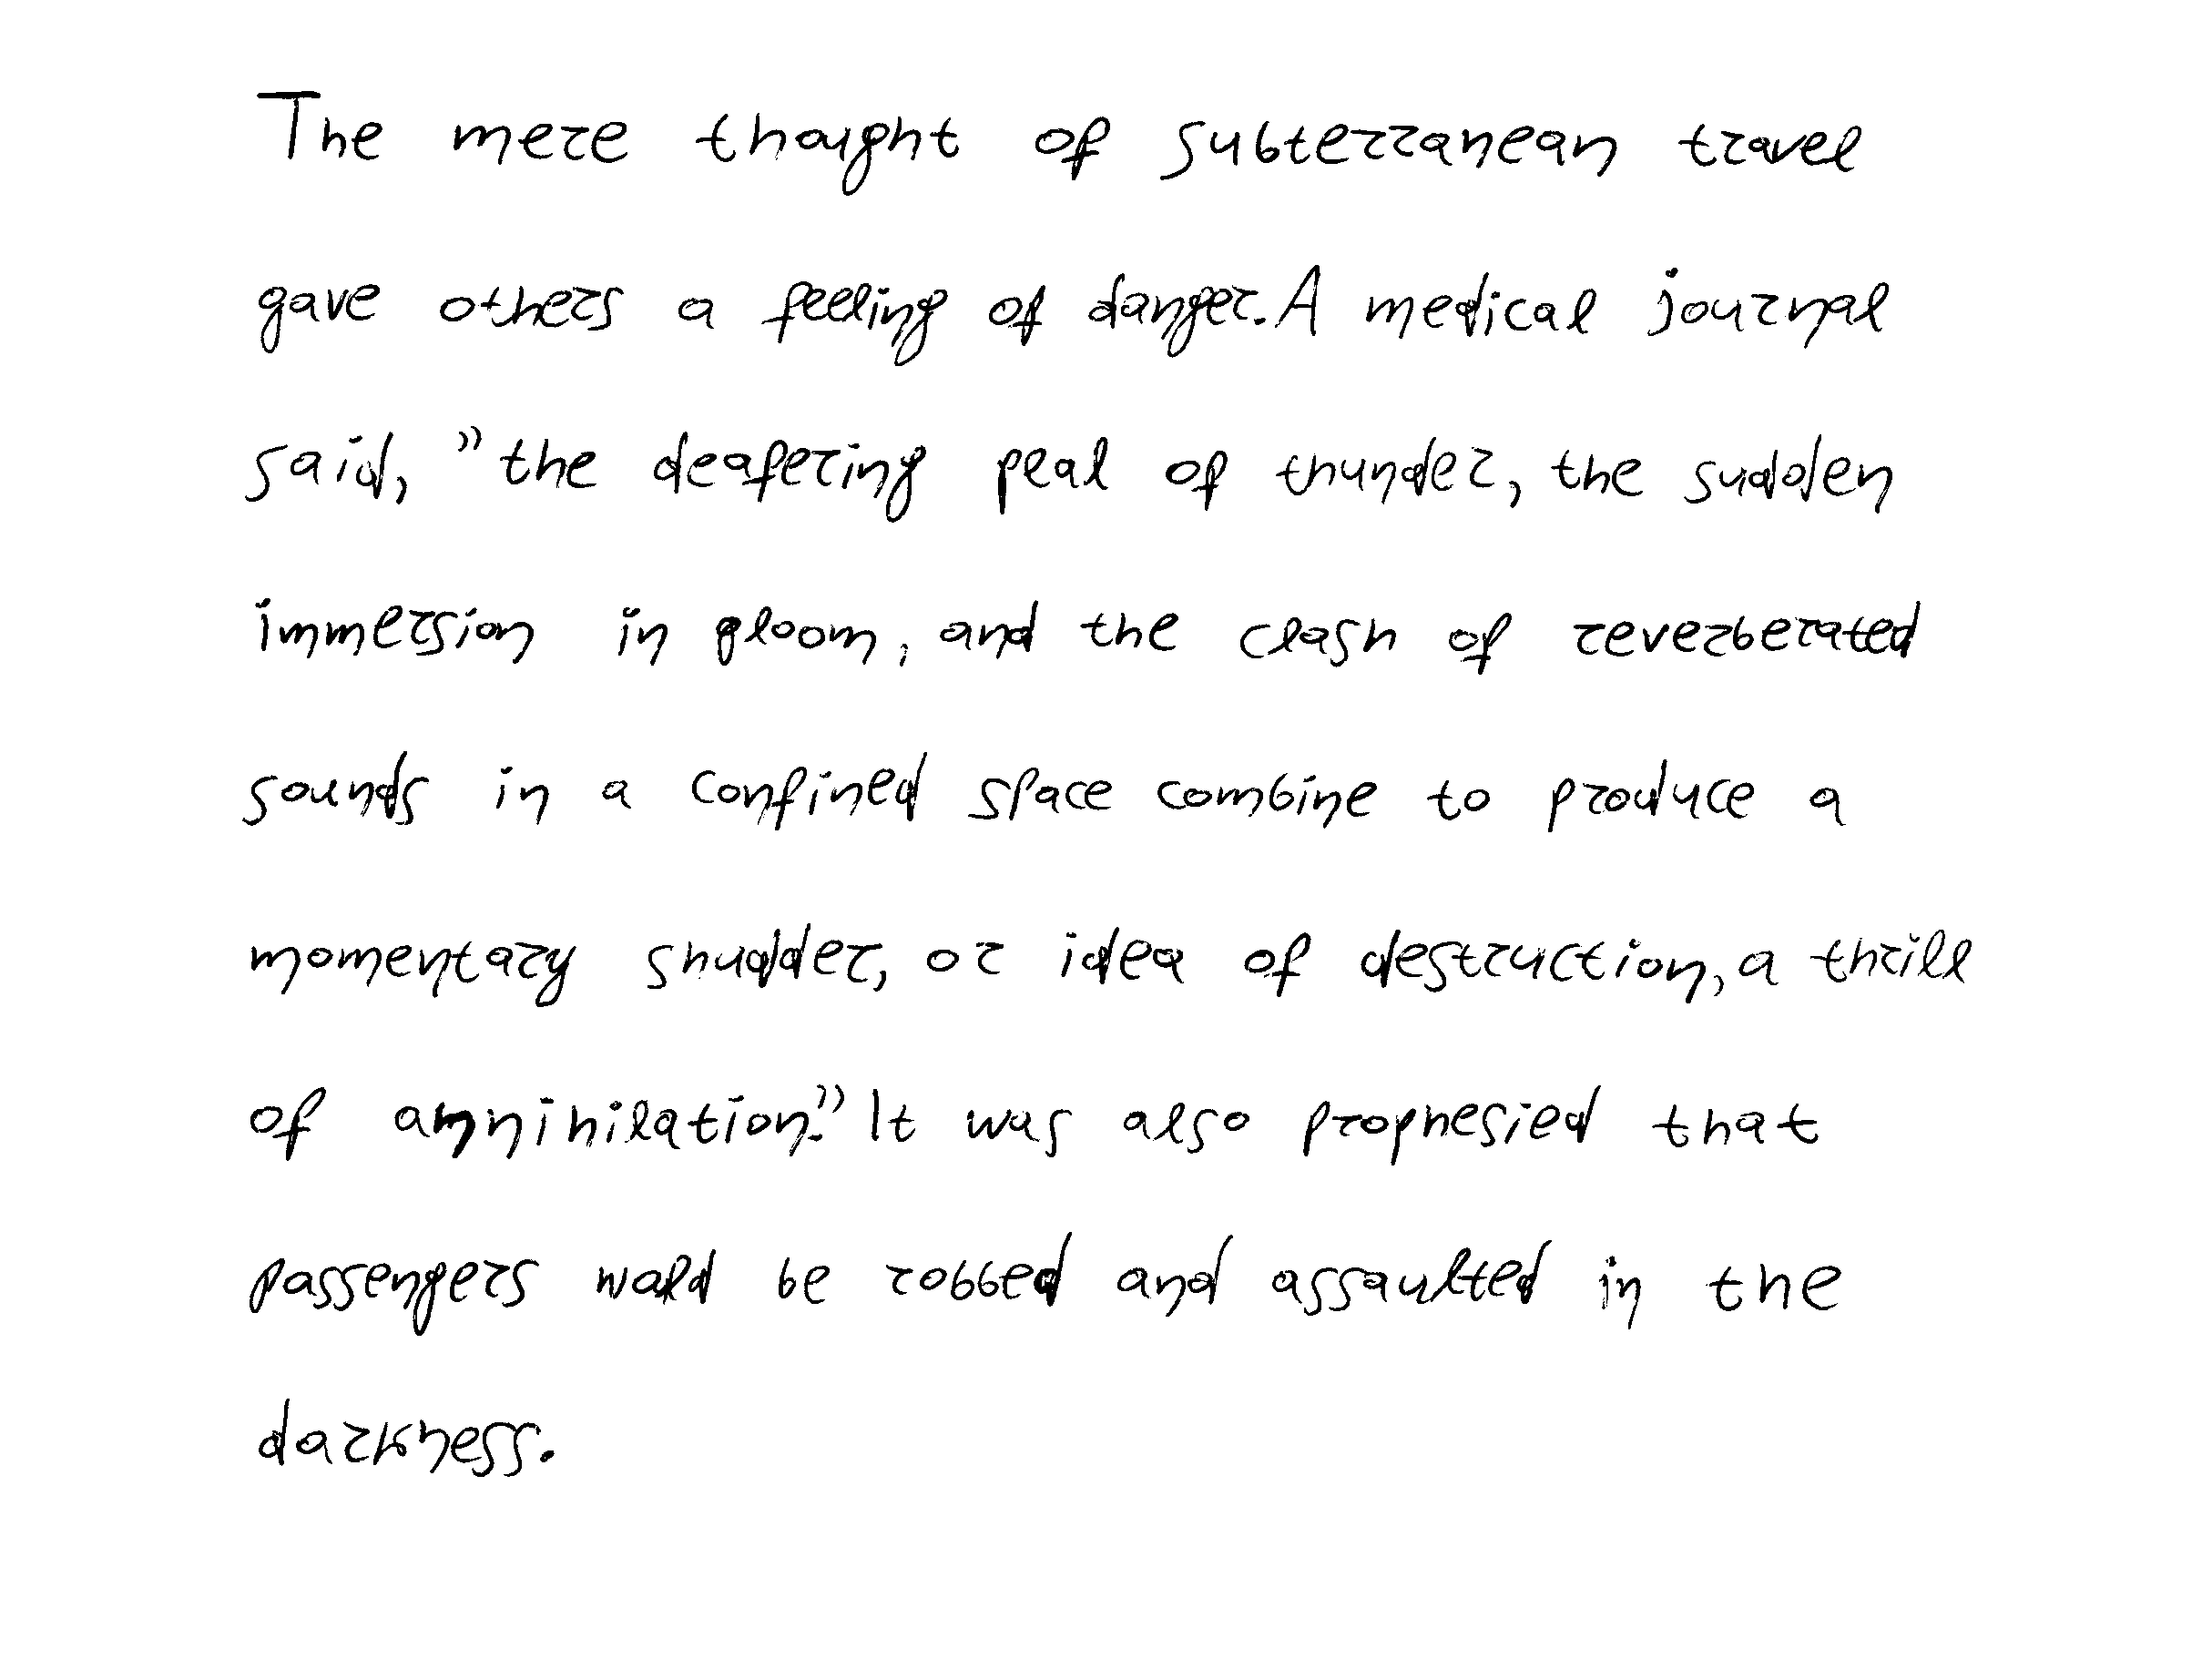 The mere thought of subterranean travel
gave others a feeling of danger. A medical journal
said, "the deafering peal of thunder, the sudden
immersion in gloom, and the clash of reverberated
sounds in a confined space combine to produce a
momentary shudder, or idea of destruction, a thrill
of annihilation." It was also prophesied that
passengers would be robbed and assaulted in the
darkness.